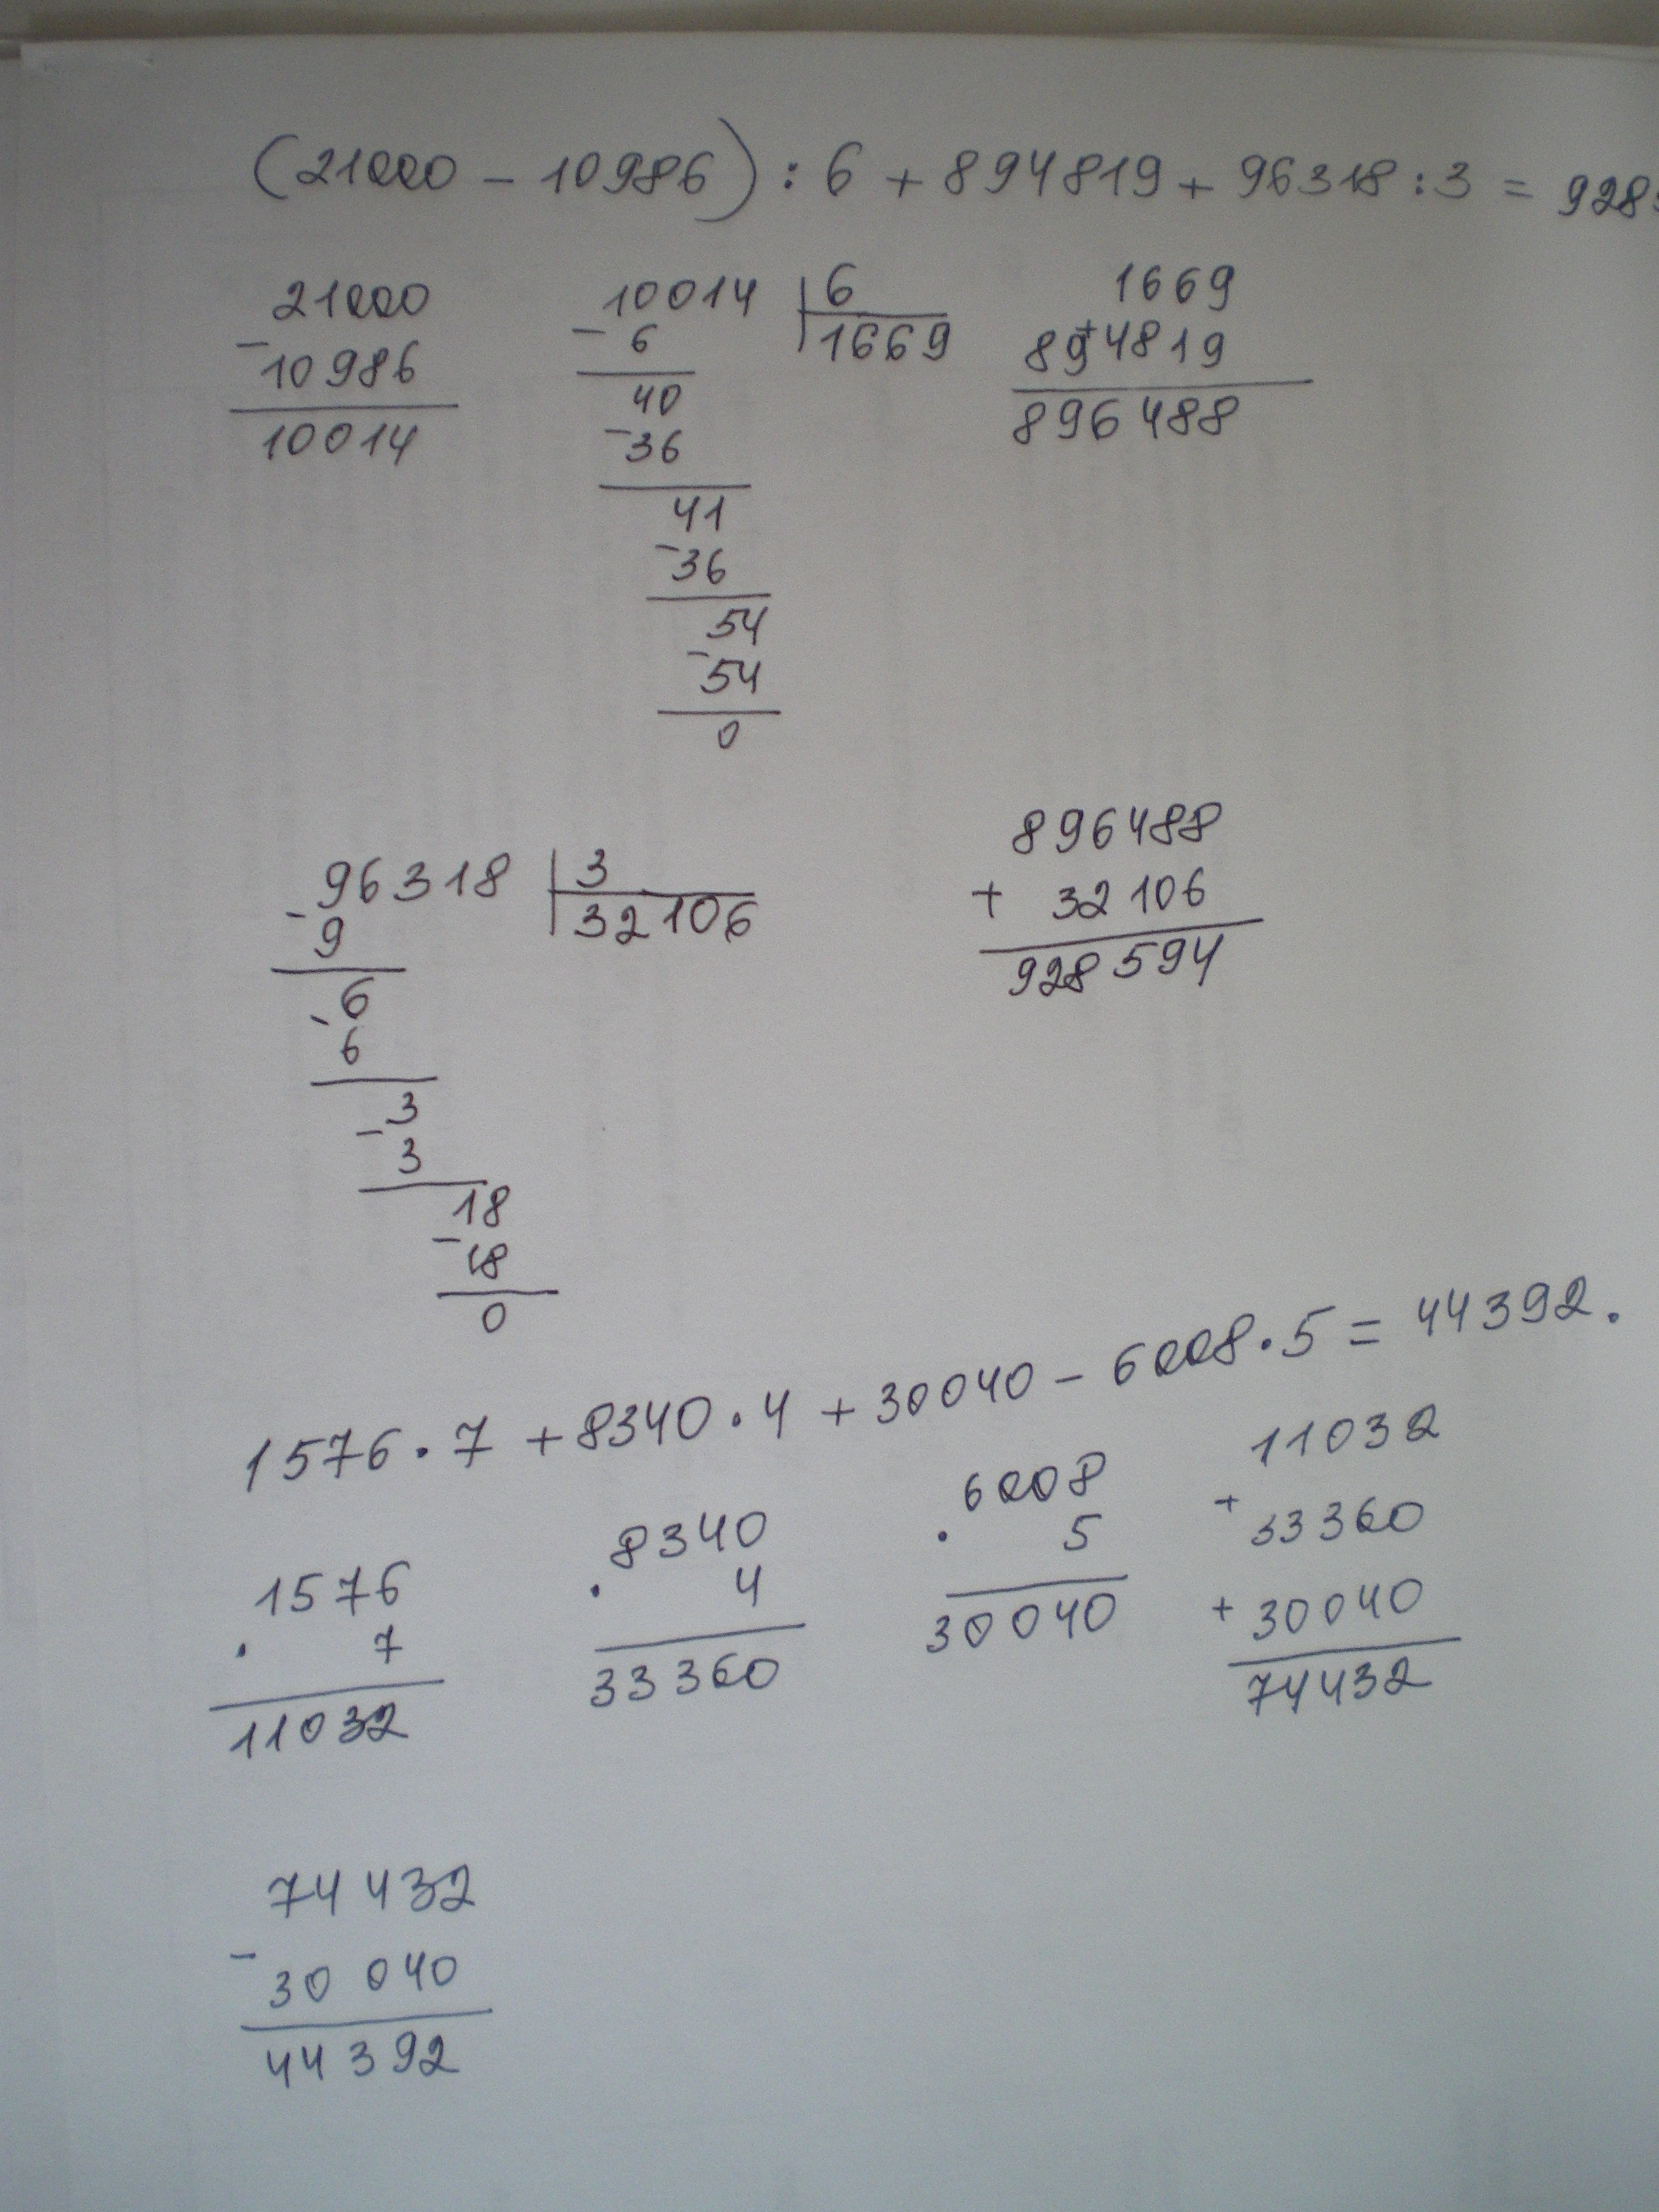 (21000 - 10986) : 6 + 894819 + 96318 : 3 = 928
21000
-
10986
10014
10014 | 6
- 6
1669
40
- 36
41
- 36
54
- 54
0
1669
+
894819
896488
96318 | 3
- 9
32106
6
- 6
3
- 3
18
- 18
0
896488
+ 32106
928594
1576 · 7 + 8340 · 4 + 30040 - 6008 · 5 = 44392.
1576
· 7
11032
8340
· 4
33360
6008
· 5
30040
11032
+ 33360
+ 30040
74432
74432
-
30040
44392